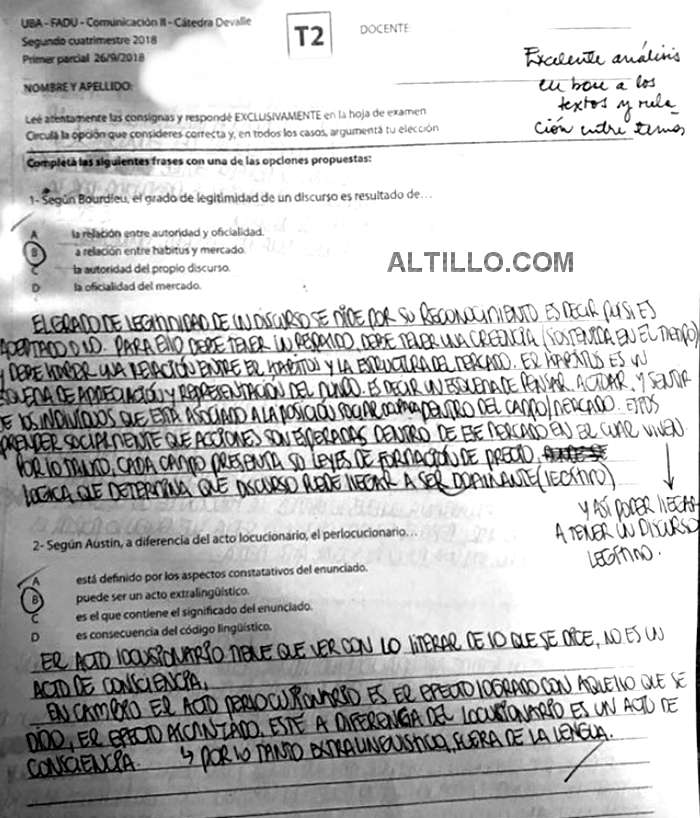 UBA - FADU - Comunicación II - Cátedra Devalle
Segundo cuatrimestre 2018
Primer parcial 26/9/2018
T2
DOCENTE
Excelente análisis
en base a los
textos y rela
ción entre temas
NOMBRE Y APELLIDO:
Leé atentamente las consignas y respondé EXCLUSIVAMENTE en la hoja de examen
Circulá la opción que consideres correcta y, en todos los casos, argumentá tu elección
Completá las siguientes frases con una de las opciones propuestas:
1- Según Bourdieu, el grado de legitimidad de un discurso es resultado de...
A la relación entre autoridad y oficialidad.
B a relación entre habitus y mercado.
C la autoridad del propio discurso.
D la oficialidad del mercado.
ALTILLO.COM
EL GRADO DE LEGITIMIDAD DE UN DISCURSO SE MIDE POR SU RECONOCIMIENTO. ES DECIR SI ES
ACEPTADO O NO. PARA ELLO DEBE TENER UN RESPALDO, DEBE TENER UNA CREENCIA (SOSTENIDA EN EL TIEMPO)
Y DEBE HABER UNA RELACIÓN ENTRE EL HABITUS Y LA ESTRUCTURA DEL MERCADO. EL HABITUS ES UN
ESQUEMA DE APRECIACIÓN Y REPRESENTACIÓN DEL MUNDO. ES DECIR UN ESQUEMA DE PENSAR, ACTUAR, Y SENTIR
DE LOS INDIVIDUOS QUE ESTA ASOCIADO A LA POSICIÓN SOCIAL DENTRO DEL CAMPO/MERCADO. ELLOS
APRENDER SOCIALMENTE QUE ACCIONES SON ESPERADAS DENTRO DE ESE MERCADO EN EL CUAL VIVEN.
POR LO TANTO, CADA CAMPO PRESENTA SU LEYES DE FORMACIÓN DE PRECIO.
LOGICA QUE DETERMINA QUE DISCURSO PUEDE LLEGAR A SER DOMINANTE (LEGÍTIMO)
Y ASÍ PODER LLEGAR
A TENER UN DISCURSO
LEGÍTIMO.
2- Según Austin, a diferencia del acto locucionario, el perlocucionario...
A está definido por los aspectos constatativos del enunciado.
B puede ser un acto extralingüístico.
C es el que contiene el significado del enunciado.
D es consecuencia del código lingüístico.
EL ACTO LOCUSIONARIO TIENE QUE VER CON LO LITERAL DE LO QUE SE DICE, NO ES UN
ACTO DE CONSCIENCIA,
EN CAMBIO EL ACTO PERLOCUCIONARIO ES EL EFECTO LOGRADO CON AQUELLO QUE SE
DIJO, EL EFECTO ALCANZADO. ESTE A DIFERENCIA DEL LOCUSIONARIO ES UN ACTO DE
CONSCIENCIA. ↳ POR LO TANTO EXTRALINGUISTICO, FUERA DE LA LENGUA.